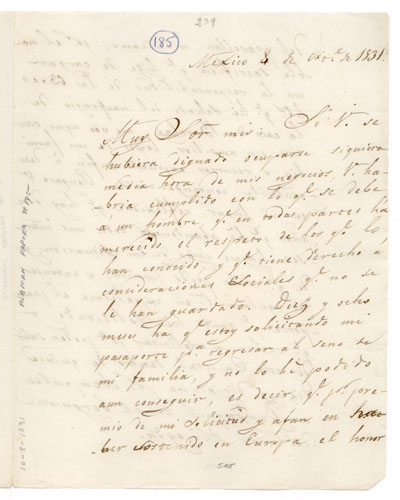 239
185
Mexico 8 de Oct.e de 1831.
Muy Sor mio: Si V. se
hubiera dignado ocuparse siquiera
media hora de mis negocios, V. ha-
bria cumplido con lo q.e se debe
a un hombre q.e en todas partes ha
merecido el respeto de los q.e lo
han conocido y q.e tiene derecho á
consideraciones sociales q.e no se
le han guardado. Diez y ocho
meses ha q.e estoy solicitando mi
pasaporte p.a regresar al seno de
mi familia, y no lo hé podido
aun conseguir, es decir, q.e p.r pre-
mio de mi solicitud y afan en
ber sostenido en Europa el honor
10-8-1831